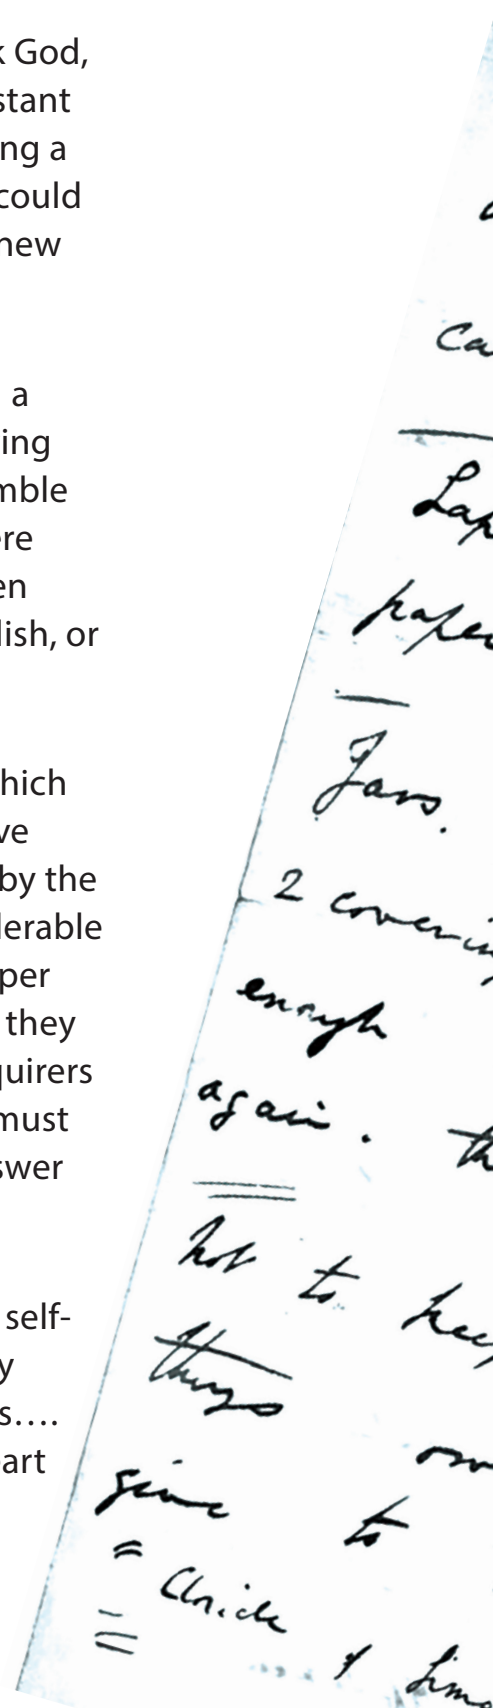 k God,
stant
ng a
could
new
a
ing
mble
re
en
lish, or
hich
ve
by the
lerable
per
they
quirers
must
swer
self-
y
s….
art
ca
Lap
paper
Jars.
2 covering
enough
again. th
not to keep
things
give to